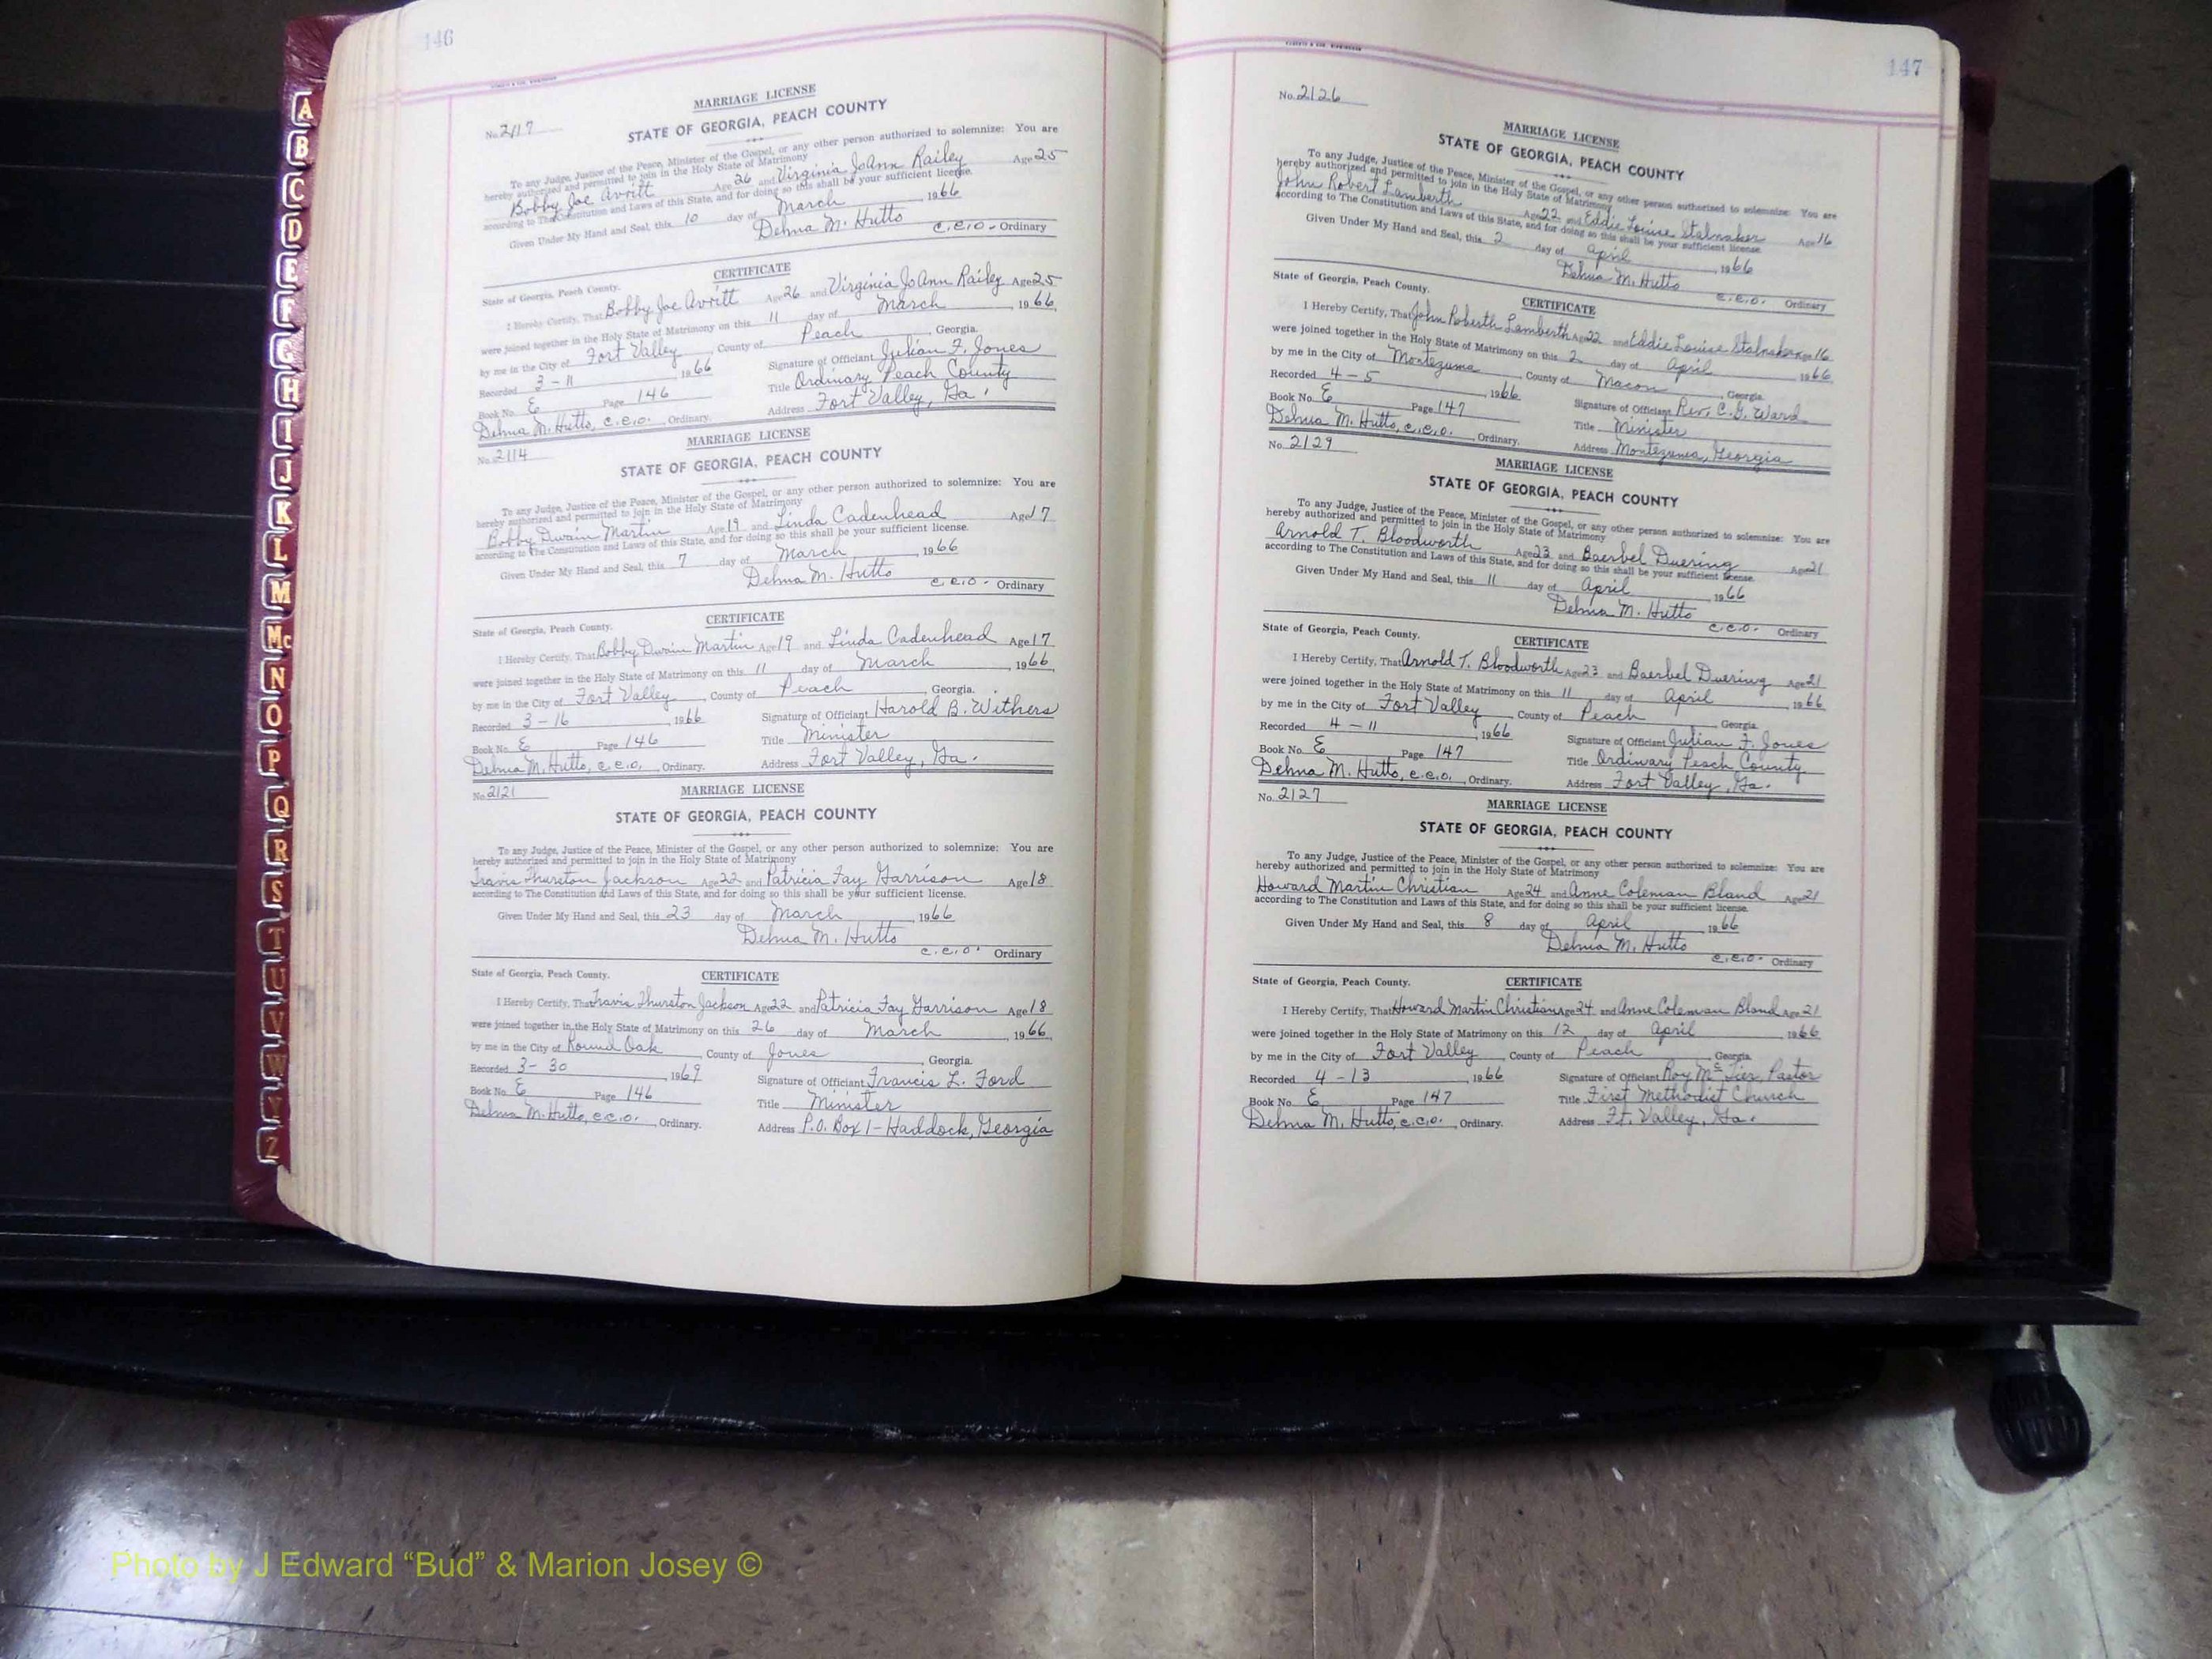 146
No. 2117
MARRIAGE LICENSE
STATE OF GEORGIA, PEACH COUNTY
To any Judge, Justice of the Peace, Minister of the Gospel, or any other person authorized to solemnize: You are
hereby authorized and permitted to join in the Holy State of Matrimony
Bobby Joe Avritt Age 26 and Virginia JoAnn Railey Age 25
according to The Constitution and Laws of this State, and for doing so this shall be your sufficient license.
Given Under My Hand and Seal, this 10 day of March, 1966
Delma M. Hutto
C.C.O. - Ordinary
CERTIFICATE
State of Georgia, Peach County.
I Hereby Certify, That Bobby Joe Avritt Age 26 and Virginia JoAnn Railey Age 25
were joined together in the Holy State of Matrimony on this 11 day of March, 1966,
by me in the City of Fort Valley, County of Peach, Georgia.
Recorded 3-11 1966 Signature of Officiant Julian F. Jones
Book No. E Page 146 Title Ordinary Peach County
Delma M. Hutto, C.C.O., Ordinary. Address Fort Valley, Ga.
MARRIAGE LICENSE
No. 2114
STATE OF GEORGIA, PEACH COUNTY
To any Judge, Justice of the Peace, Minister of the Gospel, or any other person authorized to solemnize: You are
hereby authorized and permitted to join in the Holy State of Matrimony
Bobby Dwain Martin Age 19 and Linda Cadenhead Age 17
according to The Constitution and Laws of this State, and for doing so this shall be your sufficient license.
Given Under My Hand and Seal, this 7 day of March, 1966
Delma M. Hutto
C.C.O. - Ordinary
CERTIFICATE
State of Georgia, Peach County.
I Hereby Certify, That Bobby Dwain Martin Age 19 and Linda Cadenhead Age 17
were joined together in the Holy State of Matrimony on this 11 day of March, 1966,
by me in the City of Fort Valley, County of Peach, Georgia.
Recorded 3-16, 1966 Signature of Officiant Harold B. Withers
Book No. E Page 146 Title Minister
Delma M. Hutto, C.C.O., Ordinary. Address Fort Valley, Ga.
No. 2121 MARRIAGE LICENSE
STATE OF GEORGIA, PEACH COUNTY
To any Judge, Justice of the Peace, Minister of the Gospel, or any other person authorized to solemnize: You are
hereby authorized and permitted to join in the Holy State of Matrimony
Travis Thurston Jackson Age 22 and Patricia Fay Garrison Age 18
according to The Constitution and Laws of this State, and for doing so this shall be your sufficient license.
Given Under My Hand and Seal, this 23 day of March, 1966
Delma M. Hutto
C.C.O. Ordinary
State of Georgia, Peach County. CERTIFICATE
I Hereby Certify, That Travis Thurston Jackson Age 22 and Patricia Fay Garrison Age 18
were joined together in the Holy State of Matrimony on this 26 day of March, 1966,
by me in the City of Round Oak, County of Jones, Georgia.
Recorded 3-30, 1969 Signature of Officiant Francis L. Ford
Book No. E Page 146 Title Minister
Delma M. Hutto, C.C.O., Ordinary. Address P.O. Box 1-Haddock, Georgia
147
No. 2126
MARRIAGE LICENSE
STATE OF GEORGIA, PEACH COUNTY
To any Judge, Justice of the Peace, Minister of the Gospel, or any other person authorized to solemnize: You are
hereby authorized and permitted to join in the Holy State of Matrimony
John Robert Lamberth Age 22 and Eddie Louise Stalnaker Age 16
according to The Constitution and Laws of this State, and for doing so this shall be your sufficient license.
Given Under My Hand and Seal, this 2 day of April, 1966
Delma M. Hutto
C.C.O. Ordinary
State of Georgia, Peach County.
CERTIFICATE
I Hereby Certify, That John Roberth Lamberth Age 22 and Eddie Louise Stalnaker Age 16
were joined together in the Holy State of Matrimony on this 2 day of April 1966
by me in the City of Montezuma, County of Macon, Georgia.
Recorded 4-5, 1966 Signature of Officiant Rev. C.G. Ward
Book No. E Page 147 Title Minister
Delma M. Hutto, C.C.O., Ordinary. Address Montezuma, Georgia
No. 2129
MARRIAGE LICENSE
STATE OF GEORGIA, PEACH COUNTY
To any Judge, Justice of the Peace, Minister of the Gospel, or any other person authorized to solemnize: You are
hereby authorized and permitted to join in the Holy State of Matrimony
Arnold T. Bloodworth Age 23 and Baerbel Duering Age 21
according to The Constitution and Laws of this State, and for doing so this shall be your sufficient license.
Given Under My Hand and Seal, this 11 day of April, 1966
Delma M. Hutto
C.C.O. Ordinary
State of Georgia, Peach County.
CERTIFICATE
I Hereby Certify, That Arnold T. Bloodworth Age 23 and Baerbel Duering Age 21
were joined together in the Holy State of Matrimony on this 11 day of April 1966
by me in the City of Fort Valley, County of Peach, Georgia
Recorded 4-11, 1966 Signature of Officiant Julian F. Jones
Book No. E Page 147 Title Ordinary Peach County
Delma M. Hutto, C.C.O., Ordinary. Address Fort Valley, Ga.
No. 2127
MARRIAGE LICENSE
STATE OF GEORGIA, PEACH COUNTY
To any Judge, Justice of the Peace, Minister of the Gospel, or any other person authorized to solemnize: You are
hereby authorized and permitted to join in the Holy State of Matrimony
Howard Martin Christian Age 24 and Anne Coleman Bland Age 21
according to The Constitution and Laws of this State, and for doing so this shall be your sufficient license.
Given Under My Hand and Seal, this 8 day of April, 1966
Delma M. Hutto
C.C.O. Ordinary
State of Georgia, Peach County. CERTIFICATE
I Hereby Certify, That Howard Martin Christian Age 24 and Anne Coleman Bland Age 21
were joined together in the Holy State of Matrimony on this 12 day of April 1966
by me in the City of Fort Valley, County of Peach, Georgia
Recorded 4-13, 1966 Signature of Officiant Roy McTier, Pastor
Book No. E Page 147 Title First Methodist Church
Delma M. Hutto, C.C.O., Ordinary. Address Ft. Valley, Ga.
A
B
C
D
E
F
G
H
I
J
K
L
M
Mc
N
O
P
Q
R
S
T
U
V
W
Y
Z
Photo by J Edward “Bud” & Marion Josey ©